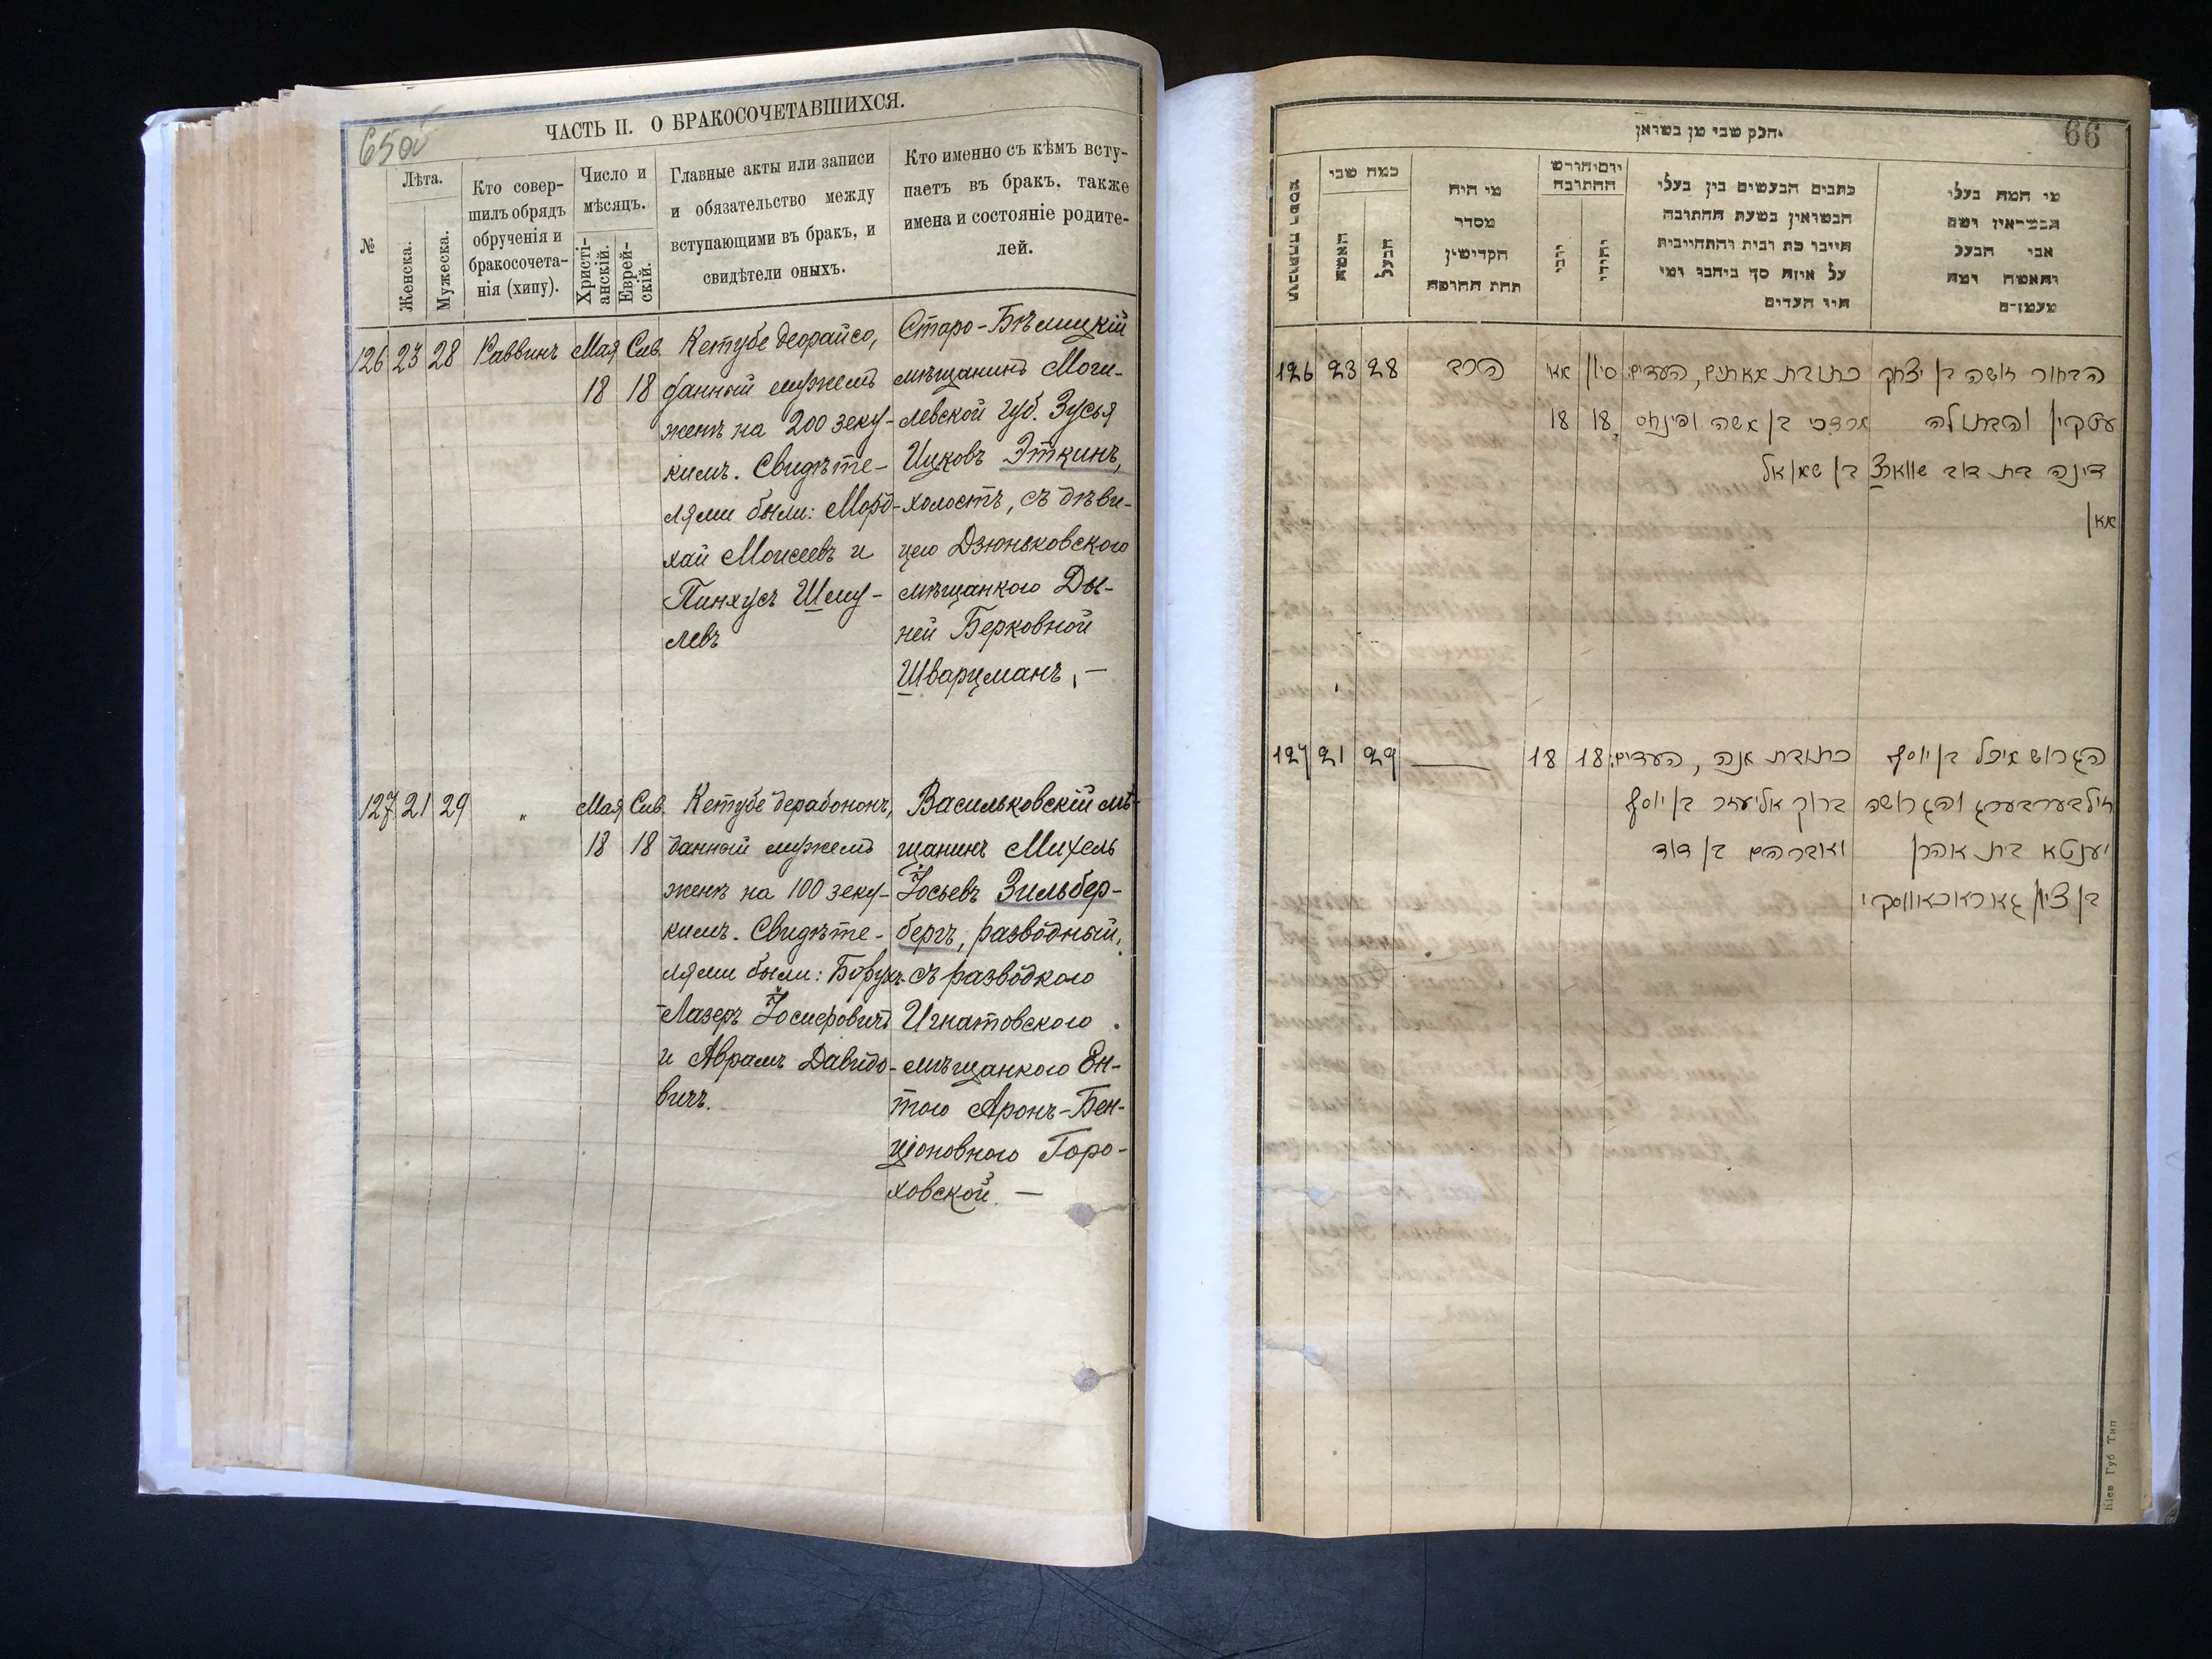 65об
ЧАСТЬ II. О БРАКОСОЧЕТАВШИХСЯ.
№
Лѣта.
Женска.
Мужеска.
Кто совер-
шилъ обрядъ
обрученія и
бракосочета-
нія (хипу).
Число и
мѣсяцъ.
Христі-
анскій.
Еврей-
скій.
Главные акты или записи
и обязательство между
вступающими въ бракъ, и
свидѣтели оныхъ.
Кто именно съ кѣмъ всту-
паетъ въ бракъ, также
имена и состояніе родите-
лей.
126 23 28 Раввинъ Мая 18 Сив. 18
Кетубе деорайсо,
данный мужемъ
женѣ на 200 зеку-
кимъ. Свидѣте-
лями были: Морд-
хай Моисеевъ и
Пинхусъ Шму-
левъ
Старо-Бѣлицкій
мѣщанинъ Моги-
левской губ. Зусья
Ицковъ Эткинъ,
холостъ, съ дѣви-
цею Дзюньковскою
мѣщанкою Ды-
ней Берковной
Шварцманъ, —
127 21 29 „ Мая 18 Сив. 18
Кетубе дерабононъ,
данный мужемъ
женѣ на 100 зеку-
кимъ. Свидѣте-
лями были: Борухъ-
Лазеръ Іосиѳовичъ
и Аврамъ Давидо-
вичъ.
Васильковскій мѣ-
щанинъ Михель
Іосьевъ Зильбер-
бергъ, разводный,
съ разводкою
Игнатовскою
мѣщанкою Ен-
тою Аронъ-Бен-
ціоновною Горо-
ховской. —
66
חלק שני מן נשואין
כמה שני
האשה
הבעל
מי היה
מסדר
הקדושין
תחת החופה
יום וחודש
החתונה
יוני
יהודי
כתבים הנעשים בין בעלי
הנשואין בשעת החתונה
היינו כת ובית והתחייבות
על איזה סך ביניהם ומי
היו העדים
מי המה בעלי
הנשואין ושם
אבי הבעל
והאשה ומה
מעמדם
126 23 28 הרב מאי 18 סיון 18
כתובת מאתים, העדים:
מרדכי בן משה ופינחס
בן שמואל
הבחור זושה בן יצחק
עטקין והבתולה
דינה בת דוב שווארצ
מאן
127 21 29 — 18 18
כתובת מנה, העדים:
ברוך אליעזר בן יוסף
ואברהם בן דוד
הגרוש מיכל בן יוסף
זילבערבערג והגרושה
יענטא בת אהרן
בן ציון גאראכאווסקי
Кіев Губ Тип